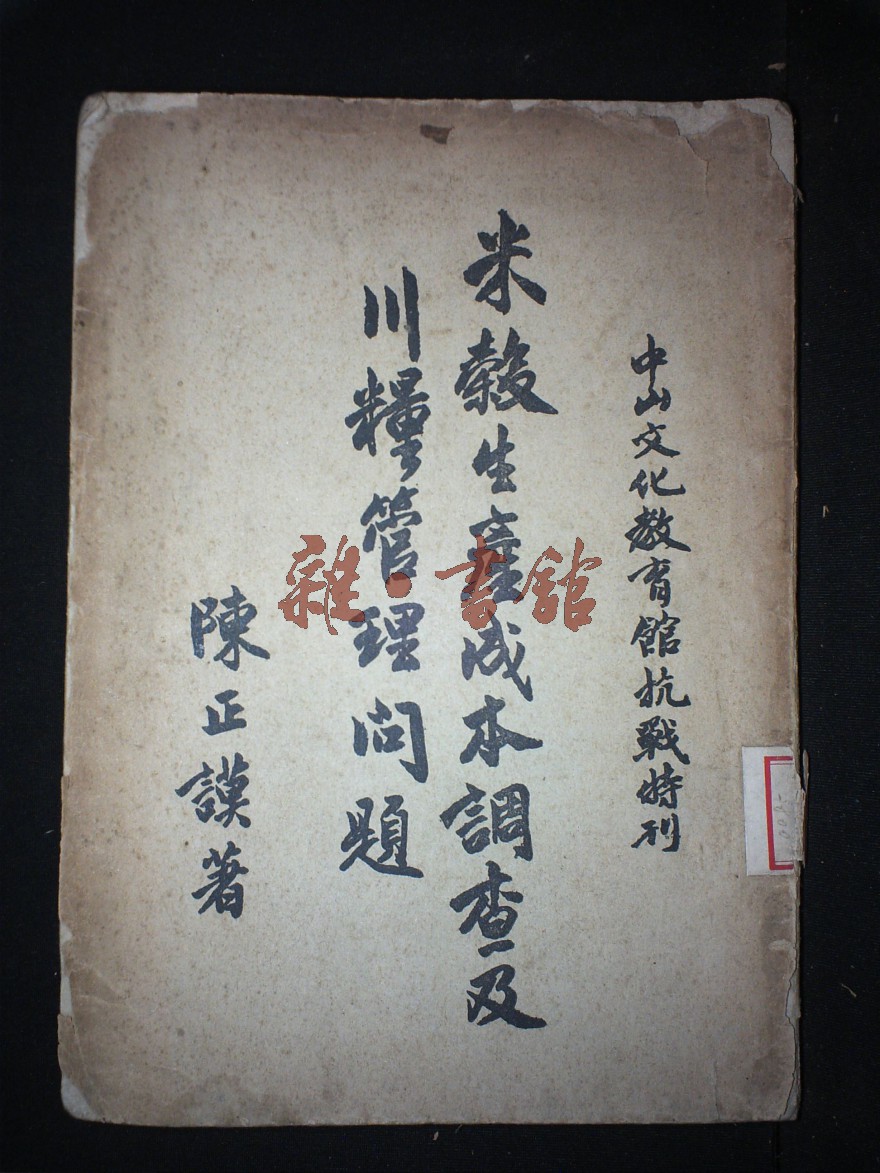 中山文化教育館抗戰特刊
米穀生產成本調查及
川糧管理問題
陳正謨著
雜·書館